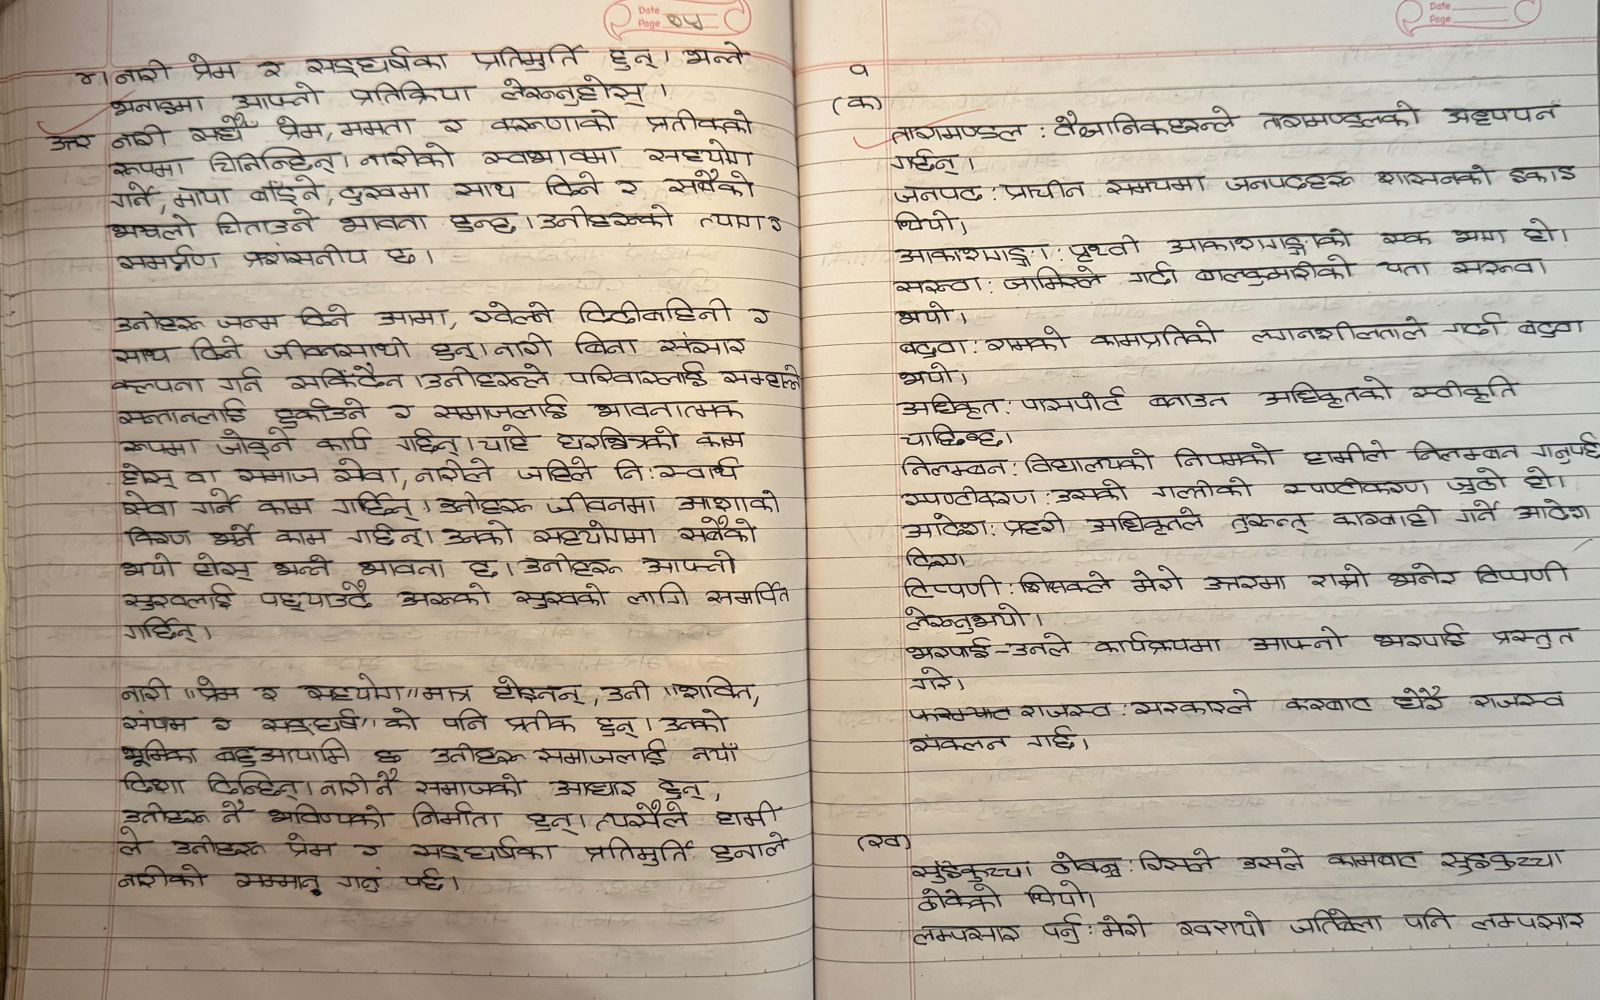 Date
Page ०५
४। नारी प्रेम र सङ्घर्षका प्रतिमुर्ति हुन्। भन्ने
भनाइमा आफ्नो प्रतिक्रिया लेख्नुहोस्।
उत्तर नारी सधैँ प्रेम, ममता र करूणाको प्रतीकको
रूपमा चिनिन्छिन्। नारीको स्वभावमा सहयोग
गर्ने, माया बाँड्ने, दुखमा साथ दिने र सबैको
भलो चिताउने भावना हुन्छ। उनीहरूको त्याग र
समर्प्रण प्रशंसनीय छ।
उनीहरू जन्म दिने आमा, खेल्ने दिदीबहिनी र
साथ दिने जीवनसाथी हुन्। नारी बिना संसार
कल्पना गर्न सकिँदैन। उनीहरूले परिवारलाई सम्हाल्ने
सन्तानलाई हुर्काउने र समाजलाई भावनात्मक
रूपमा जोड्ने कार्य गर्छिन्। चाहे घरभित्रको काम
होस् वा समाज सेवा, नारीले जहिले नि:स्वार्थ
सेवा गर्ने काम गर्छिन्। उनीहरू जीवनमा आशाको
किरण भर्ने काम गर्छिन्। उनको सहयोगमा सबैको
भयो होस् भन्ने भावना छ। उनीहरू आफ्नो
सुखलाई पछ्याउदै अरूको सुखको लागि समर्पित
गर्छिन्।
नारी "प्रेम र सहयोग" मात्र होइनन्, उनी "शक्ति,
संयम र सङ्घर्ष" को पनि प्रतीक हुन्। उनको
भूमिका बहुआयामि छ उनीहरू समाजलाई नयाँ
दिशा दिन्छिन्। नारी नै समाजको आधार हुन्,
उनीहरू नै भविष्यको निर्माता हुन्। त्यसैले हामी
ले उनीहरू प्रेम र सङ्घर्षका प्रतिमुर्ति हुनाले
नारीको सम्मान् गर्नु पर्छ।
Date
Page
१
(क)
तारामण्डल : वैज्ञानिकहरूले तारामण्डलको अध्ययन
गर्छन्।
जनपद : प्राचीन समयमा जनपदहरू शासनको इकाइ
थियो।
आकाशगङ्गा : पृथ्वी आकाशगङ्गाको एक भाग हो।
सरुवा : जागिरले गर्दा बालकुमारीको यता सरुवा
भयो।
बढुवा : रामको कामप्रतिको लगनशीलताले गर्दा बढुवा
भयो।
अधिकृत : पासपोर्ट बनाउन अधिकृतको स्वीकृति
चाहिन्छ।
निलम्बन : विद्यालयको नियमको हामीले निलम्बन गनुपर्छ
स्पष्टीकरण : उसको गल्तीको स्पष्टीकरण जुठो हो।
आदेश : प्रहरी अधिकृतले तुरुन्त् कारवाही गर्ने आदेश
दिए।
टिप्पणी : शिक्षकले मेरो उत्तरमा राम्रो भनेर टिप्पणी
लेख्नुभयो।
भरपाई - उनले कार्यक्रममा आफ्नो भरपाई प्रस्तुत
गरे।
राजस्व : सरकारले करबाट धेरै राजस्व
संकलन गर्छ।
(ख)
सुइँकुच्चा ठोक्नु : रिसले उसले कामबाट सुइकुच्चा
ठोकेको थियो।
लम्पसार पर्नु : मेरो खरायो जतिबेला पनि लम्पसार